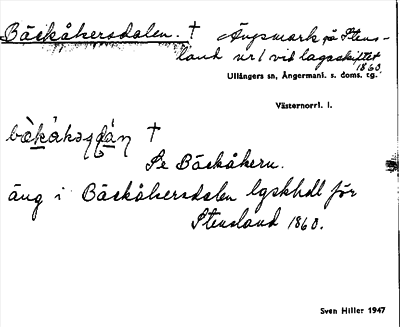 Bäckåkersdalen. † Ängsmark på Stens-
land nr 1 vid lagaskiftet
1860.
Ullångers sn, Ångermanl. s. doms. tg.
Västernorrl. l.
†
Se Bäckåkern.
äng i Bäckåkersdalen lgskhdl för
Stensland 1860.
Sven Hiller 1947